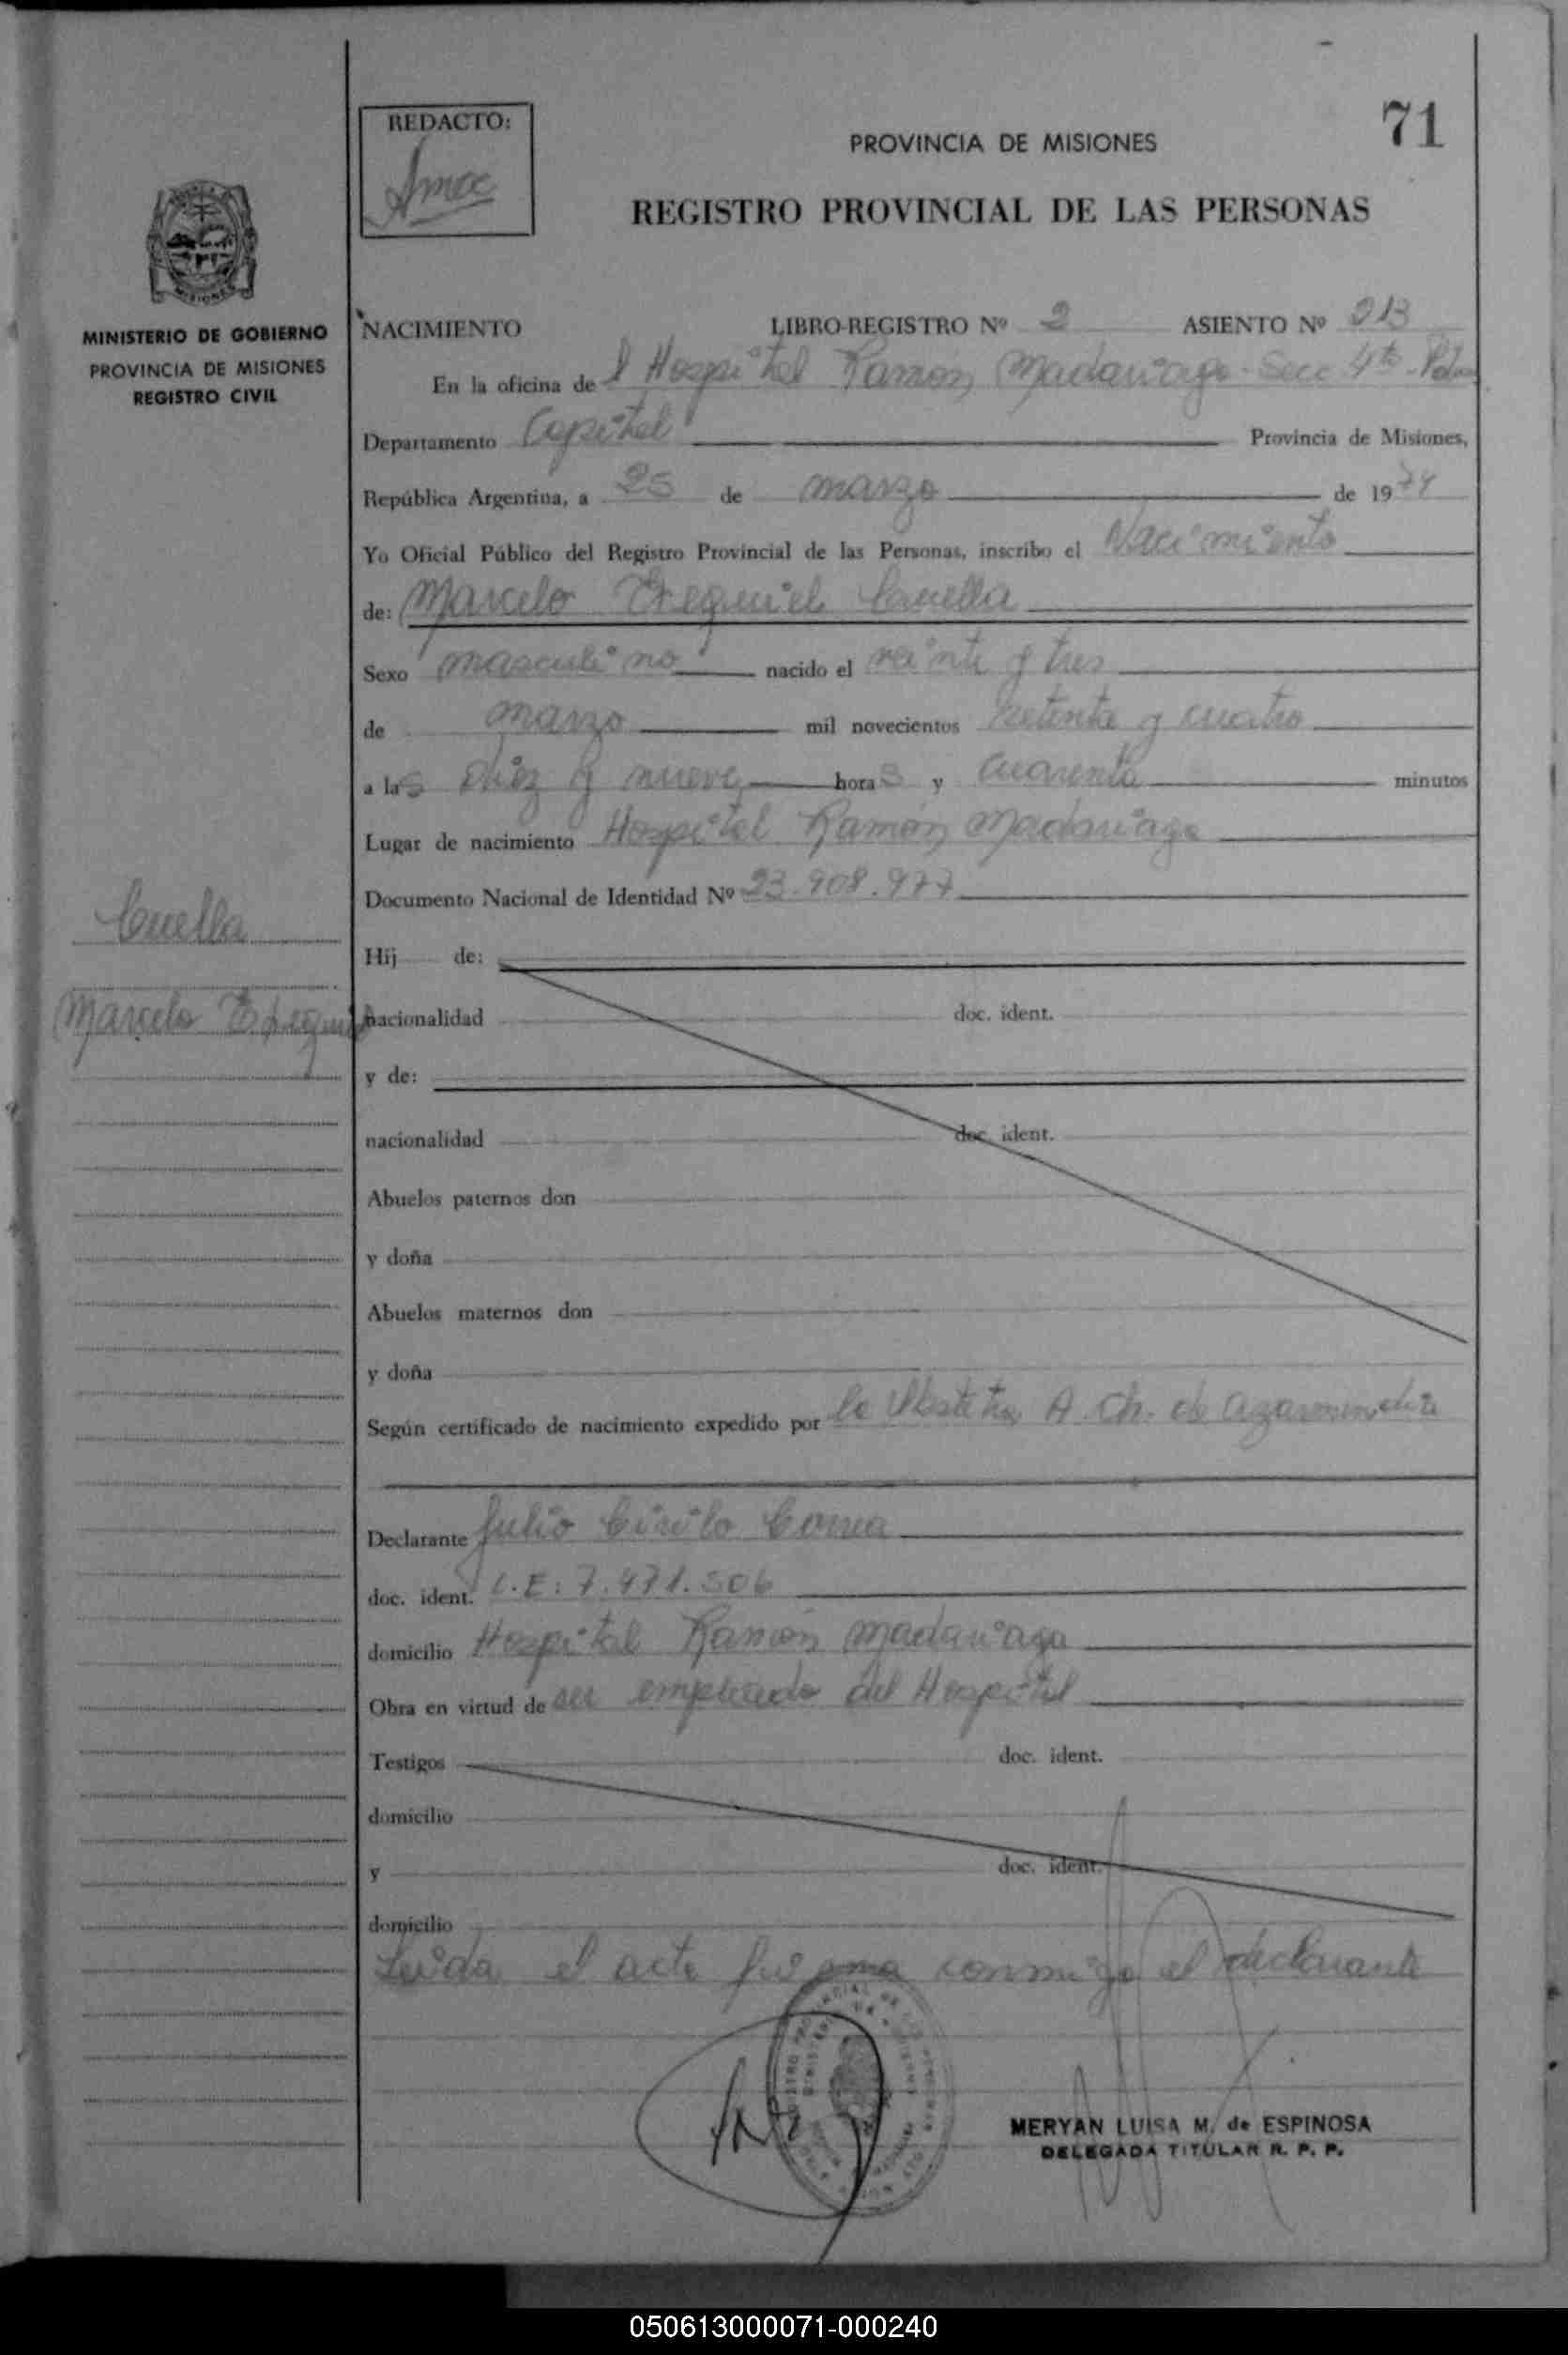 71
REDACTO:
PROVINCIA DE MISIONES
REGISTRO PROVINCIAL DE LAS PERSONAS
MINISTERIO DE GOBIERNO
PROVINCIA DE MISIONES
REGISTRO CIVIL
NACIMIENTO LIBRO-REGISTRO Nº 2 ASIENTO Nº 213
En la oficina de l Hospital Ramon Madariaga - Secc 4ta -
Departamento Capital Provincia de Misiones,
República Argentina, a 25 de marzo de 1974
Yo Oficial Público del Registro Provincial de las Personas, inscribo el Nacimiento
de: Marcelo Ezequiel
Sexo masculino nacido el veinte y tres
de marzo mil novecientos setenta y cuatro
a las diez y nueve horas y cuarenta minutos
Lugar de nacimiento Hospital Ramón Madariaga
Documento Nacional de Identidad Nº 23.908.977
Marcelo Ezequiel
Hij de:
nacionalidad doc. ident.
y de:
nacionalidad doc. ident.
Abuelos paternos don
y doña
Abuelos maternos don
y doña
Según certificado de nacimiento expedido por la Obstetra A. Ch. de
Declarante Julio Cirilo
doc. ident. L.E: 7.471.506
domicilio Hospital Ramón Madariaga
Obra en virtud de ser empleado del Hospital
Testigos doc. ident.
domicilio
y doc. ident.
domicilio
Leida el acta firma conmigo el declarante
MERYAN LUISA M. de ESPINOSA
DELEGADA TITULAR R. P. P.
050613000071-000240